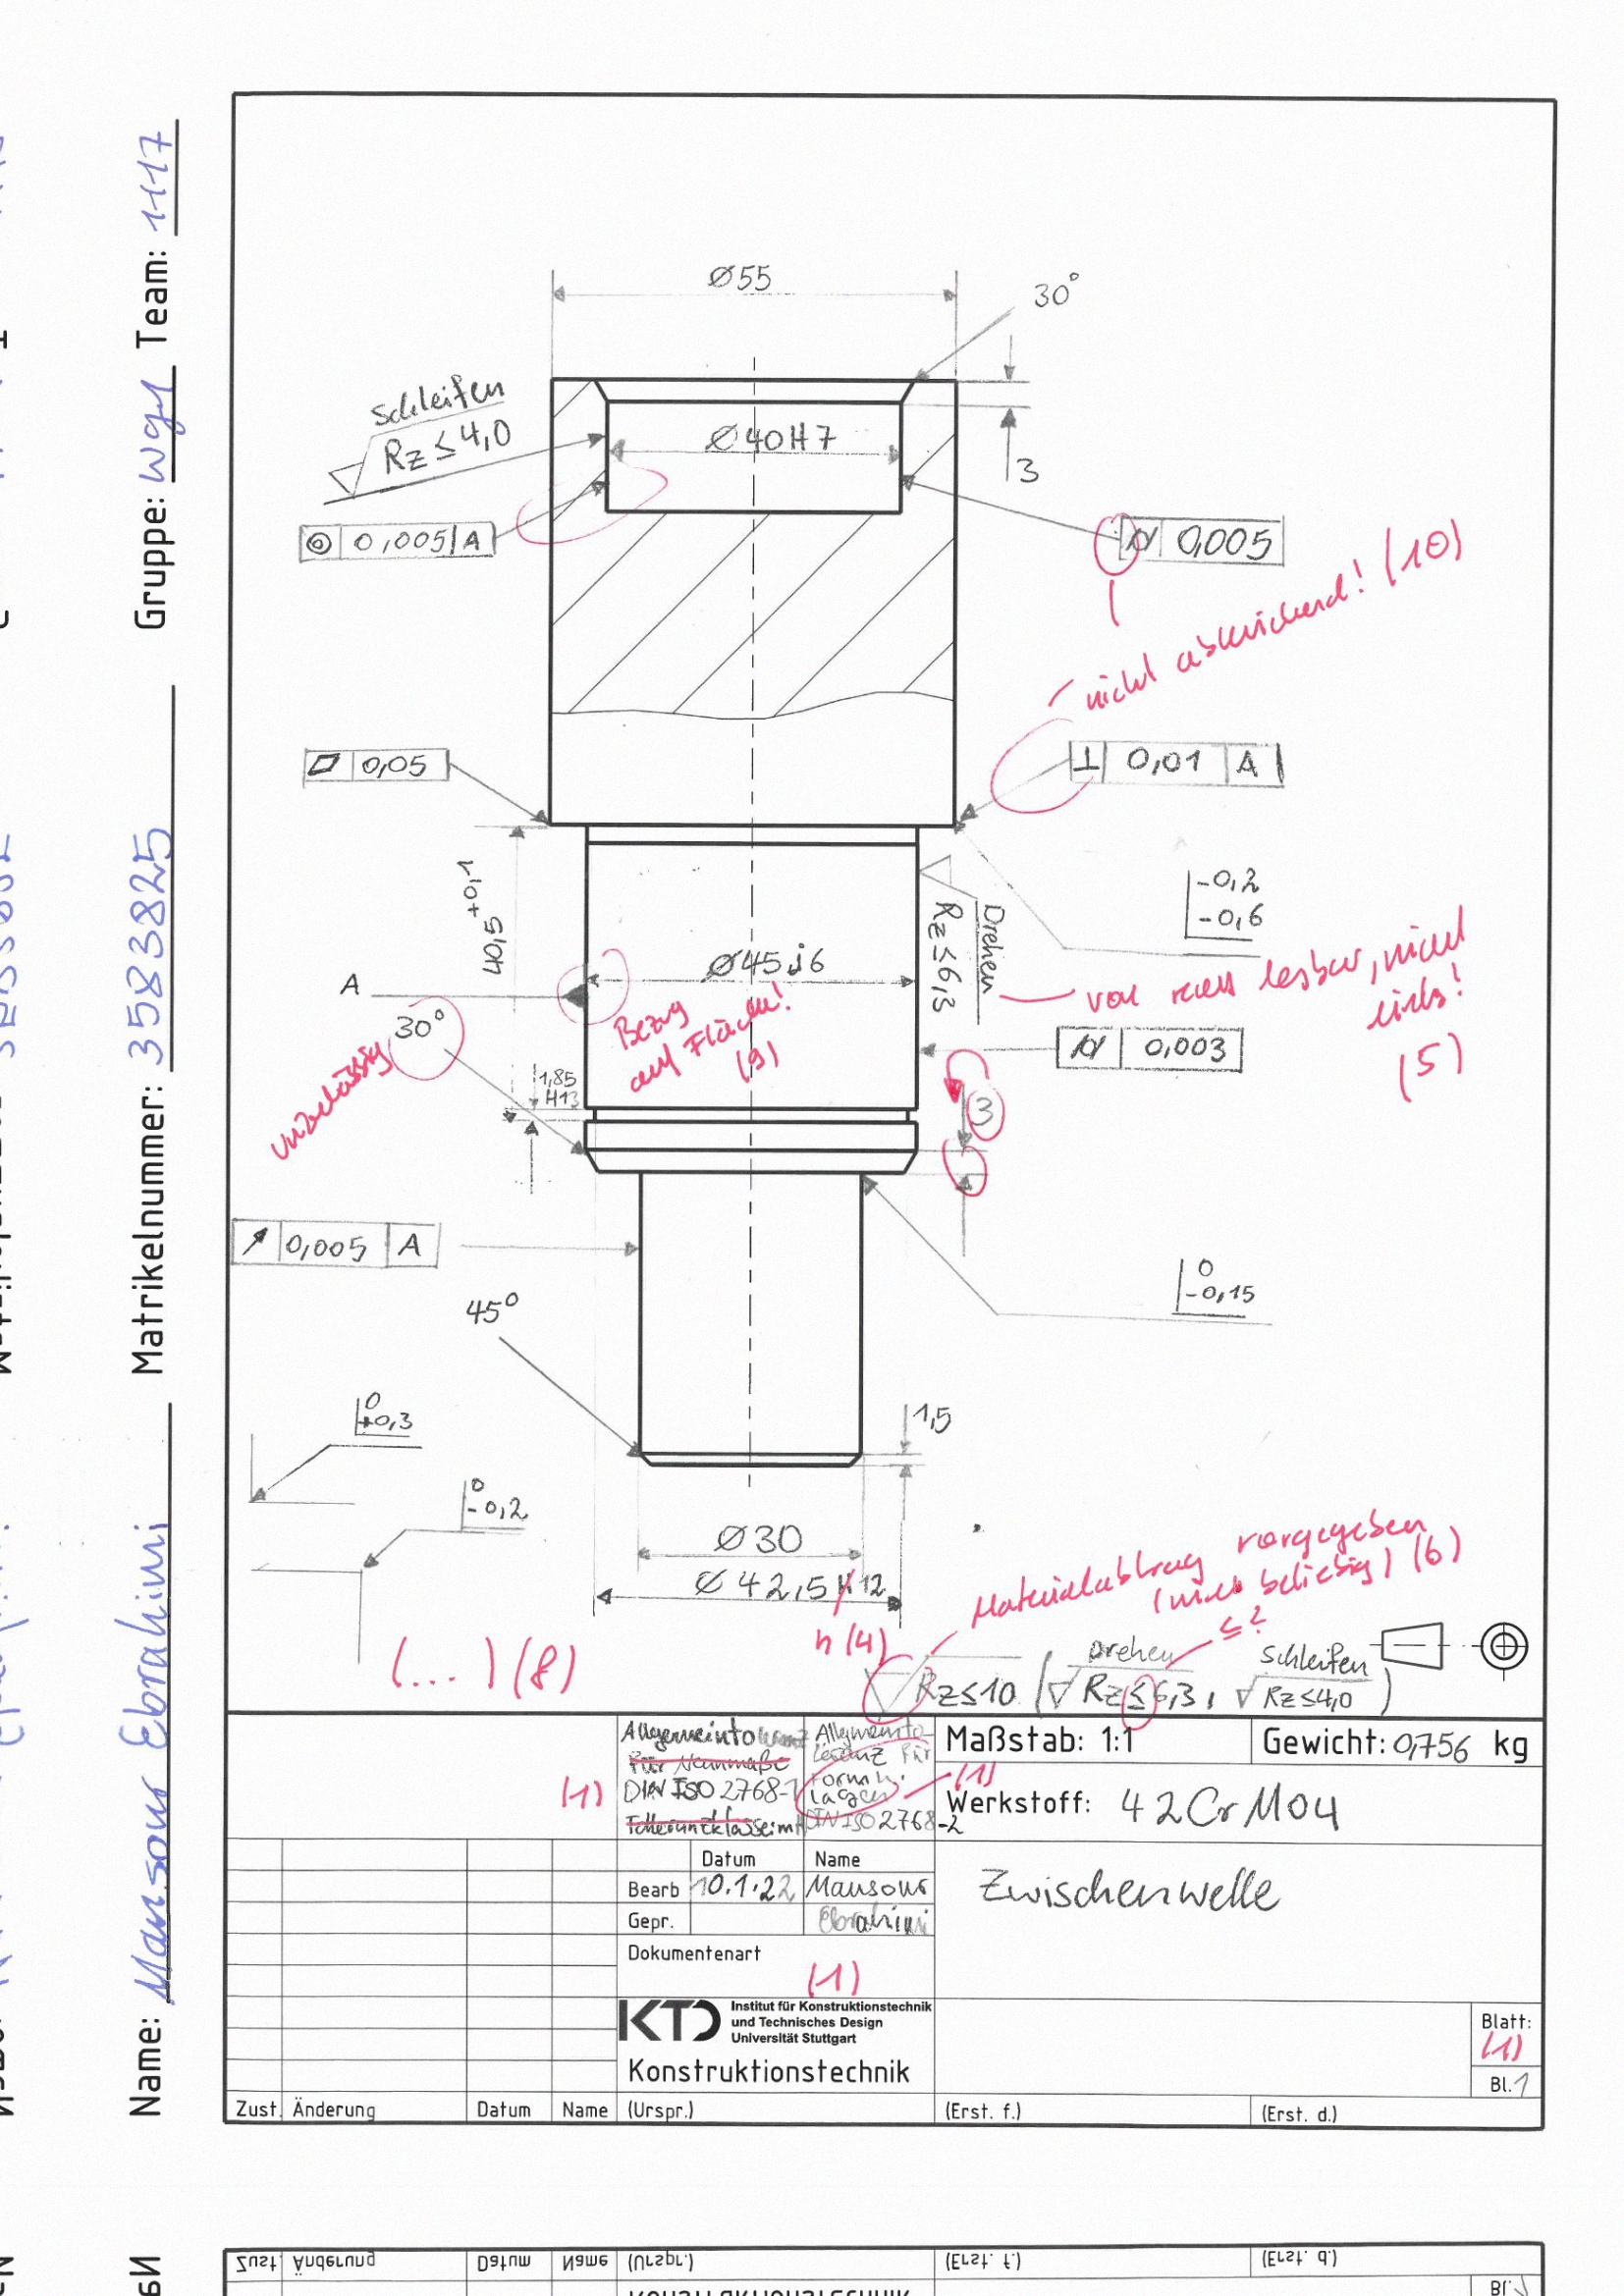 Name: Mansour Ebrahimi Matrikelnummer: 3583825 Gruppe: Wgl Team: 1117
Ø55
30°
Schleifen
Rz ≤ 4,0
Ø40H7
3
0,005 A
0,005
nicht abweichend! (10)
0,05
0,01 A
-0,2
-0,6
40,5 +0,1
Drehen
Rz ≤ 6,3
Ø45j6
A
30°
unzulässig
Bezug
auf Fläche!
(9)
von rechts lesbar, nicht
links!
(5)
0,003
1,85
H13
3
0,005 A
0
-0,15
45°
0
+0,3
1,5
0
-0,2
Ø30
Ø42,5 H12
h (4)
(...) (8)
Materialabtrag vorgegeben
(nicht beliebig) (6)
≤ ?
Rz ≤ 10 (Drehen Rz ≤ 6,3, Schleifen Rz ≤ 4,0)
Allgemeintoleranz
für Nennmaße
DIN ISO 2768-1
Toleranzklasse m
(1)
Allgemeinto-
leranz für
Form u.
Lagen
DIN ISO 2768-2
(1)
Maßstab: 1:1
Gewicht: 0,756 kg
Werkstoff: 42CrMo4
Datum Name
Bearb 10.1.22 Mansour
Gepr. Ebrahimi
Zwischenwelle
Dokumentenart
(1)
KTD Institut für Konstruktionstechnik
und Technisches Design
Universität Stuttgart
Konstruktionstechnik
Blatt:
(1)
Bl. 1
Zust. Änderung Datum Name (Urspr.) (Erst. f.) (Erst. d.)
Zust. Änderung Datum Name (Urspr.) (Erst. f.) (Erst. d.)